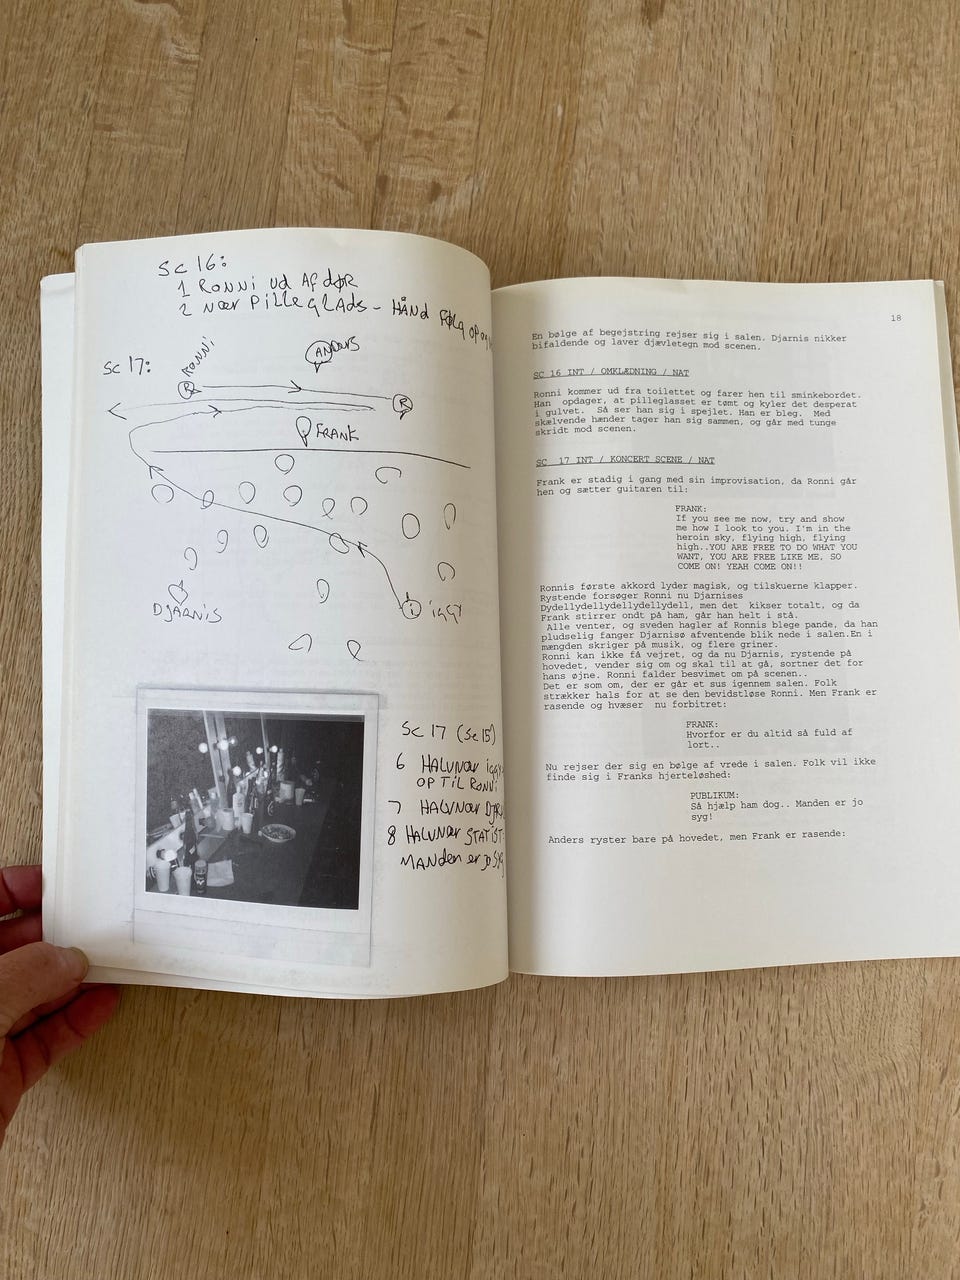 SC 16:
1 RONNI UD AF DØR
2 NÆR PILLEGLADS - HÅND FØLG OP
SC 17:
RONNI
ANDERS
R
R
FRANK
DJARNIS
i IGGY
SC 17 (SC 15)
6 HALVNÆR IGGY
OP TIL RONNI
7 HALVNÆR DJAR
8 HALVNÆR STATIST
MANDEN ER JO SYG
18
En bølge af begejstring rejser sig i salen. Djarnis nikker
bifaldende og laver djævletegn mod scenen.
SC 16 INT / OMKLÆDNING / NAT
Ronni kommer ud fra toilettet og farer hen til sminkebordet.
Han opdager, at pilleglasset er tømt og kyler det desperat
i gulvet. Så ser han sig i spejlet. Han er bleg. Med
skælvende hænder tager han sig sammen, og går med tunge
skridt mod scenen.
SC 17 INT / KONCERT SCENE / NAT
Frank er stadig i gang med sin improvisation, da Ronni går
hen og sætter guitaren til:
FRANK:
If you see me now, try and show
me how I look to you. I'm in the
heroin sky, flying high, flying
high..YOU ARE FREE TO DO WHAT YOU
WANT, YOU ARE FREE LIKE ME, SO
COME ON! YEAH COME ON!!
Ronnis første akkord lyder magisk, og tilskuerne klapper.
Rystende forsøger Ronni nu Djarnises
Dydellydellydellydellydell, men det kikser totalt, og da
Frank stirrer ondt på ham, går han helt i stå.
Alle venter, og sveden hagler af Ronnis blege pande, da han
pludselig fanger Djarnisø afventende blik nede i salen.En i
mængden skriger på musik, og flere griner.
Ronni kan ikke få vejret, og da nu Djarnis, rystende på
hovedet, vender sig om og skal til at gå, sortner det for
hans øjne. Ronni falder besvimet om på scenen..
Det er som om, der er går et sus igennem salen. Folk
strækker hals for at se den bevidstløse Ronni. Men Frank er
rasende og hvæser nu forbitret:
FRANK:
Hvorfor er du altid så fuld af
lort..
Nu rejser der sig en bølge af vrede i salen. Folk vil ikke
finde sig i Franks hjerteløshed:
PUBLIKUM:
Så hjælp ham dog.. Manden er jo
syg!
Anders ryster bare på hovedet, men Frank er rasende: